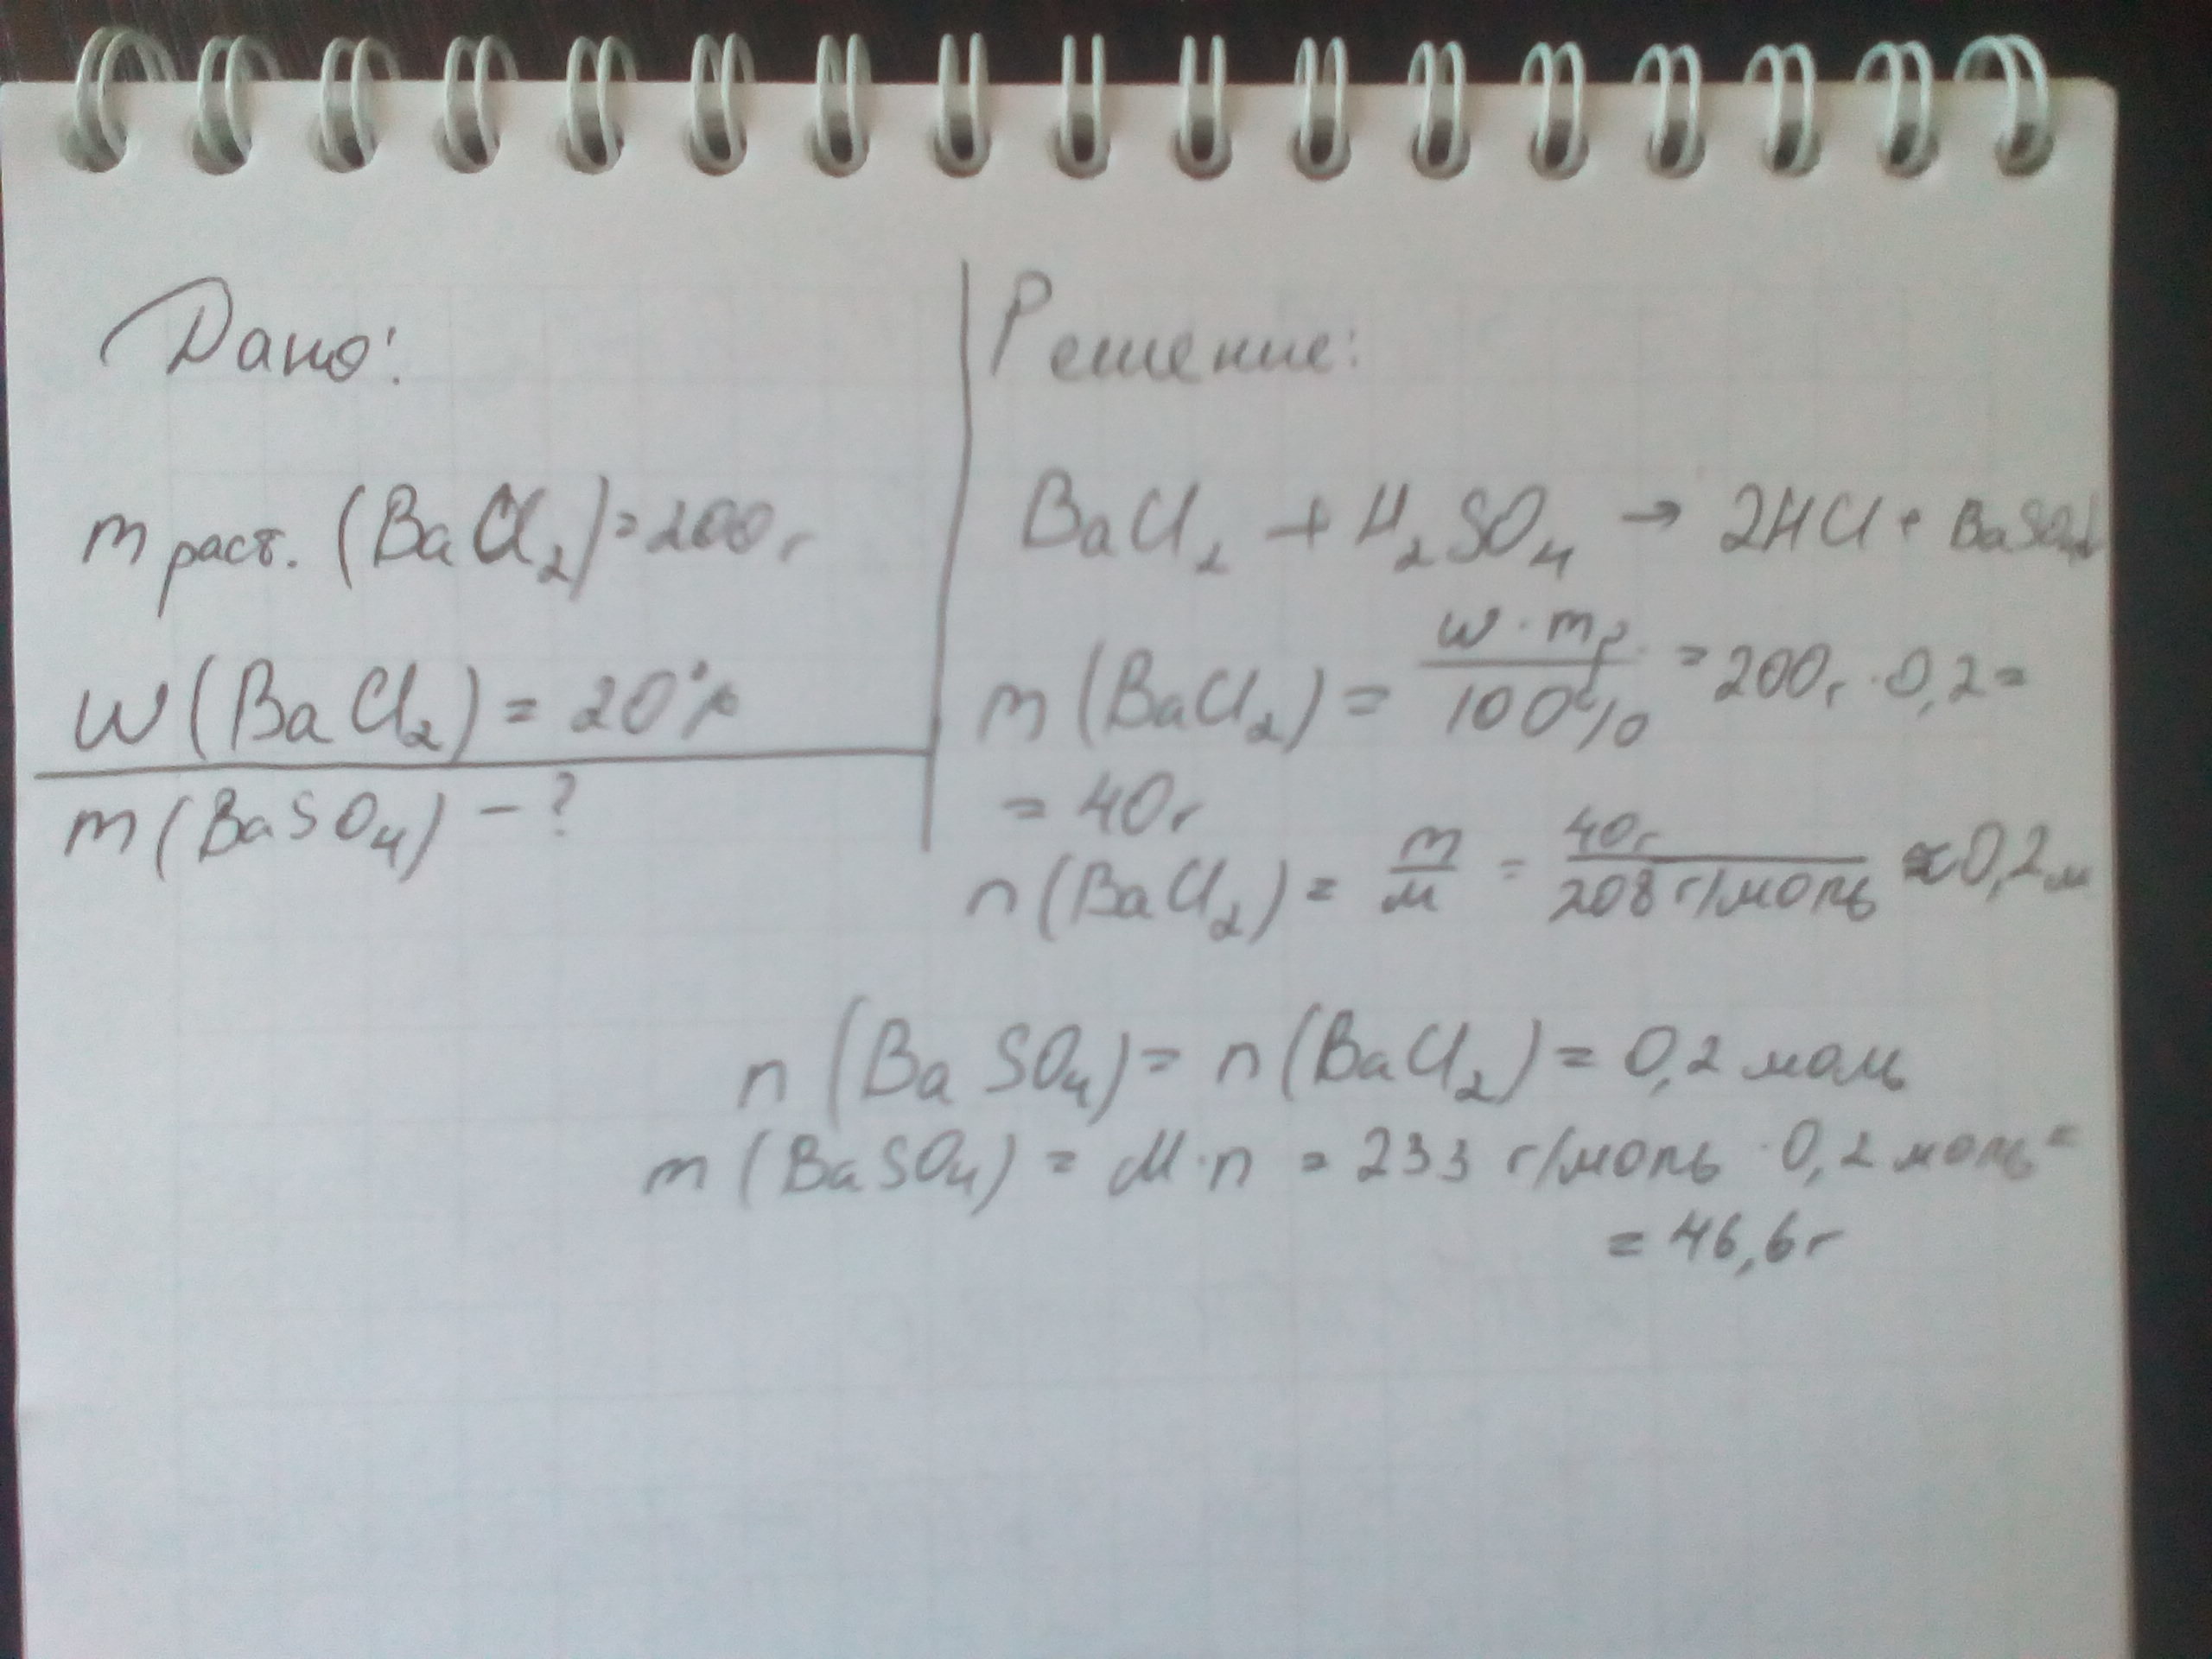 Дано:
m раст. (BaCl₂) = 200 г
w(BaCl₂) = 20%
m(BaSO₄) - ?
Решение:
BaCl₂ + H₂SO₄ → 2HCl + BaSO₄↓
m(BaCl₂) = w · mр. / 100% = 200г · 0,2 =
= 40г
n(BaCl₂) = m/M = 40г / 208 г/моль ≈ 0,2 м
n(BaSO₄) = n(BaCl₂) = 0,2 моль
m(BaSO₄) = M · n = 233 г/моль · 0,2 моль =
= 46,6 г